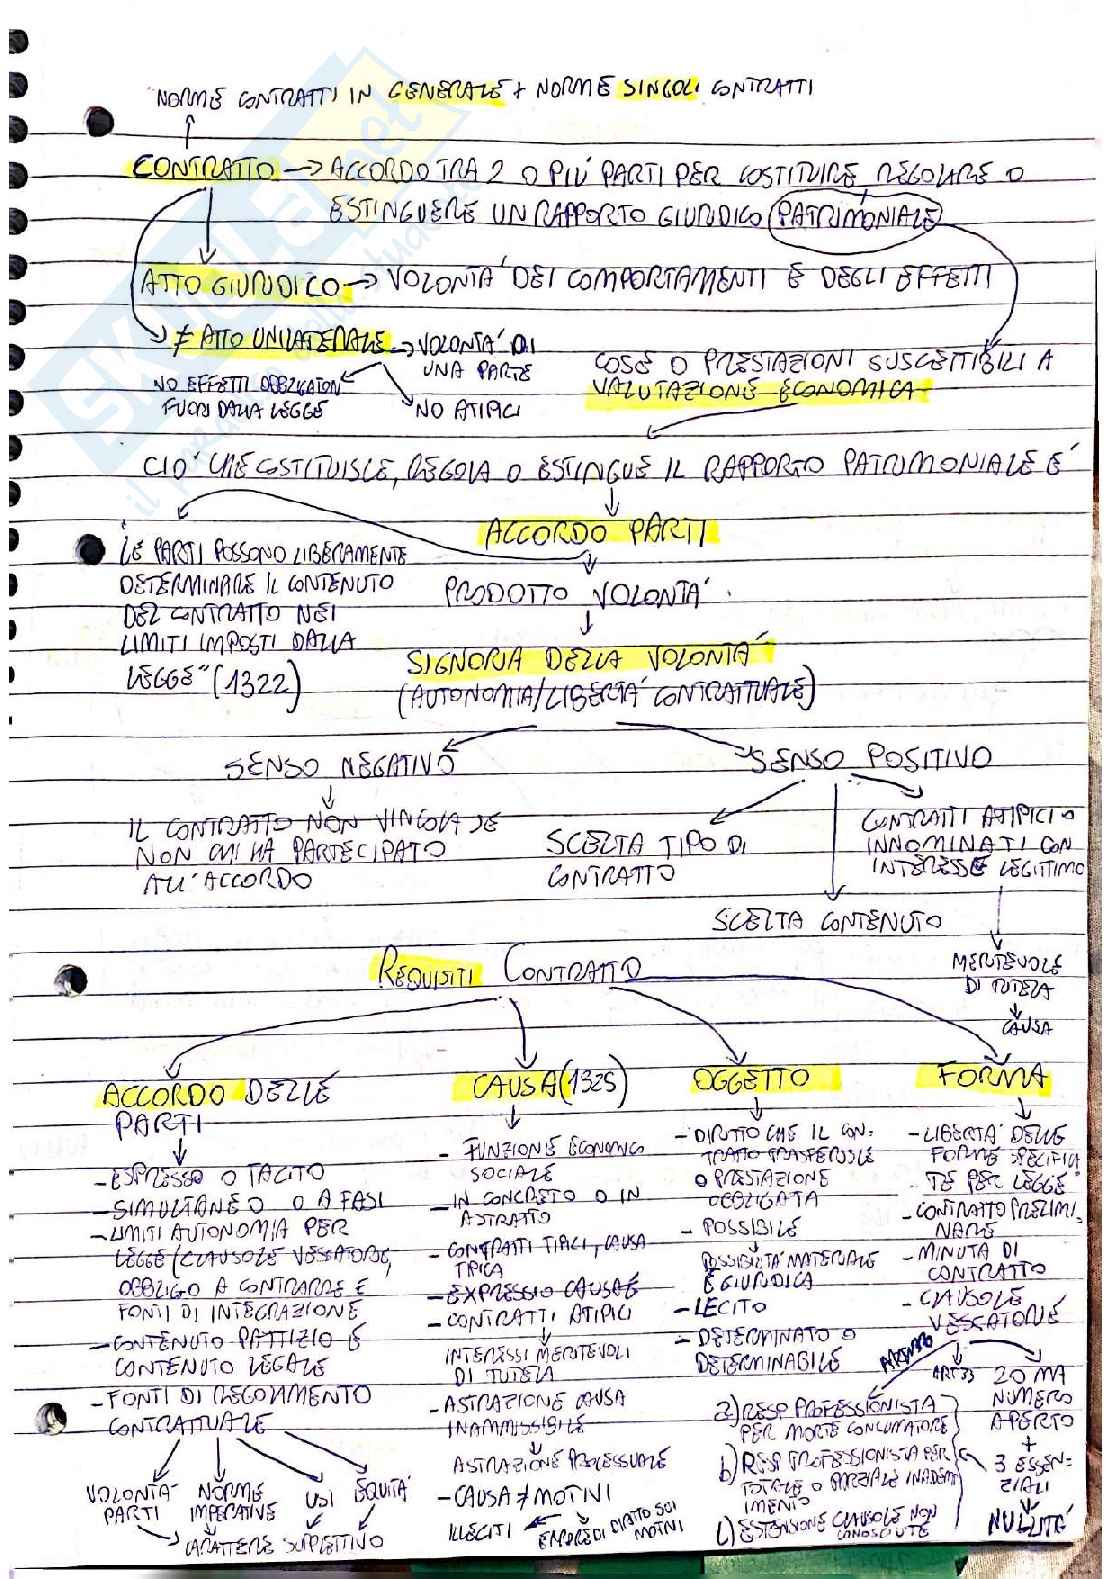 NORME CONTRATTI IN GENERALE + NORME SINGOLI CONTRATTI
CONTRATTO → ACCORDO TRA 2 O PIÚ PARTI PER COSTITUIRE REGOLARE O
ESTINGUERE UN RAPPORTO GIURIDICO PATRIMONIALE
ATTO GIURIDICO → VOLONTÁ DEI COMPORTAMENTI E DEGLI EFFETTI
≠ ATTO UNILATERALE → VOLONTÁ DI
UNA PARTE
NO EFFETTI OBBLIGATORI
FUORI DALLA LEGGE
NO ATIPICI
COSE O PRESTAZIONI SUSCETTIBILI A
VALUTAZIONE ECONOMICA
CIÓ CHE COSTITUISCE, REGOLA O ESTINGUE IL RAPPORTO PATRIMONIALE É
ACCORDO PARTI
"LE PARTI POSSONO LIBERAMENTE
DETERMINARE IL CONTENUTO
DEL CONTRATTO NEI
LIMITI IMPOSTI DALLA
LEGGE" (1322)
PRODOTTO VOLONTÁ
SIGNORIA DELLA VOLONTÁ
(AUTONOMIA/LIBERTÁ CONTRATTUALE)
SENSO NEGATIVO
IL CONTRATTO NON VINCOLA SE
NON CHI HA PARTECIPATO
ALL'ACCORDO
SENSO POSITIVO
SCELTA TIPO DI
CONTRATTO
SCELTA CONTENUTO
CONTRATTI ATIPICI O
INNOMINATI CON
INTERESSE LEGITTIMO
MERITEVOLE
DI TUTELA
CAUSA
REQUISITI CONTRATTO
ACCORDO DELLE
PARTI
- ESPRESSO O TACITO
- SIMULTANEO O A FASI
- LIMITI AUTONOMIA PER
LEGGE/CLAUSOLE VESSATORIE,
OBBLIGO A CONTRARRE E
FONTI DI INTEGRAZIONE
- CONTENUTO PATTIZIO E
CONTENUTO LEGALE
- FONTI DI REGOLAMENTO
CONTRATTUALE
VOLONTÁ
PARTI
NORME
IMPERATIVE
USI
EQUITÁ
CARATTERE SUPPLETIVO
CAUSA (1325)
- FUNZIONE ECONOMICO
SOCIALE
- IN CONCRETO O IN
ASTRATTO
- CONTRATTI TIPICI, CAUSA
TIPICA
- EXPRESSIO CAUSAE
- CONTRATTI ATIPICI
INTERESSI MERITEVOLI
DI TUTELA
- ASTRAZIONE CAUSA
INAMMISSIBILE
ASTRAZIONE PROCESSUALE
- CAUSA ≠ MOTIVI
ILLECITI
MOTIVI
OGGETTO
- DIRITTO CHE IL CON-
TRATTO TRASFERISCE
O PRESTAZIONE
OBBLIGATA
- POSSIBILE
POSSIBILITÁ MATERIALE
E GIURIDICA
- LECITO
- DETERMINATO O
DETERMINABILE
FORMA
- LIBERTÁ DELLE
FORME SPECIFICA
TE PER LEGGE
- CONTRATTO PRELIMI
NARE
- MINUTA DI
CONTRATTO
- CLAUSOLE
VESSATORIE
ART 33
20 MA
NUMERO
APERTO
+
3 ESSEN-
ZIALI
NULLITÁ
a) RESP PROFESSIONISTA
PER MORTE CONSUMATORE
b) RESP PROFESSIONISTA PER
TOTALE O PARZIALE INADEMP
IMENTO
c) ESTENSIONE CLAUSOLE NON
CONOSCIUTE